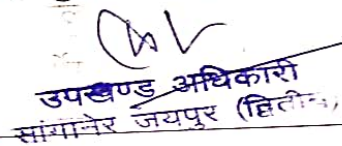 उपखण्ड अधिकारी
सांगानेर जयपुर (द्वितीय)